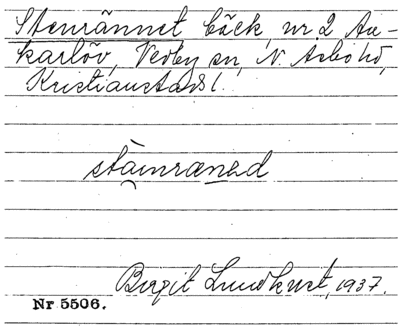 Stenrännet bäck, nr 2 An-
karlöv, Vedby sn, N. Åsbo hd,
Kristianstads l.
stäinrænəd
Birgit Lundkvist, 1937.
Nr 5506.